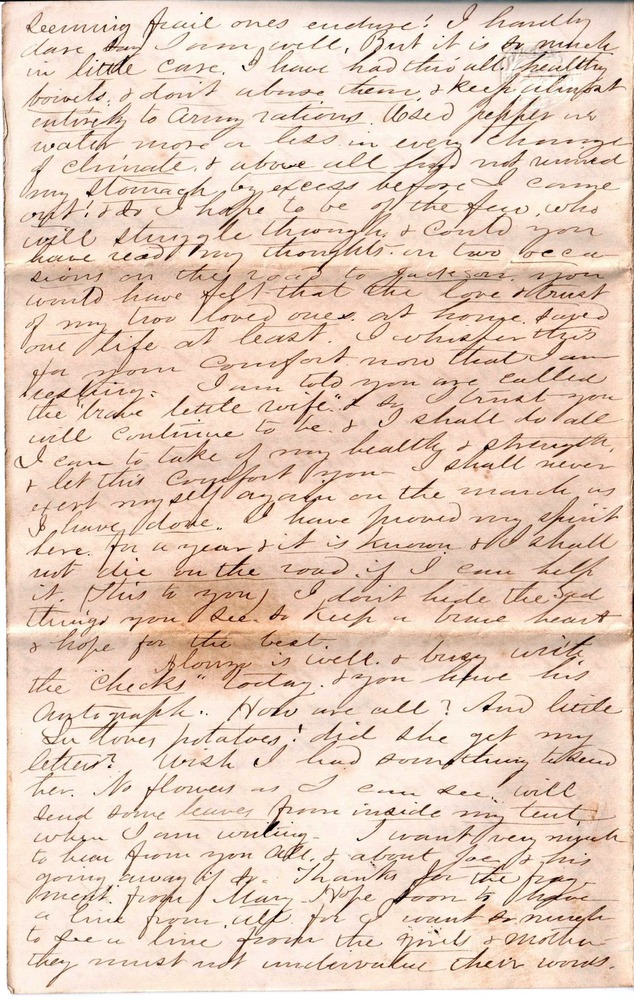 seeming frail ones endure! I hardly
dare say I am well. But it is so much
in little care. I have had thro' all healthy
bowels, & don't abuse them, & keep almost
entirely to Army rations. Used pepper in
water more or less in every change
of climate. & above all had not ruined
my stomach by excess before I came
out! & so I hope to be of the few, who
will struggle through. & could you
have read my thoughts on two occa
sions on the road to Jackson you
would have felt that the love & trust
of my two loved ones at home saved
one life at least. I whisper this
for your comfort now that I am
resting. I am told you are called
the "brave little wife" & so I trust you
will continue to be. & I shall do all
I can to take of my health & strength,
& let this comfort you - I shall never
exert myself again on the march as
I have done. I have proved my spirit
here for a year & it is known & I shall
not die on the road if I can help
it. (This to you) I don't hide the sad
things you see. So keep a brave heart
& hope for the best.
is well. & busy with
the "checks" today. & you have his
Autograph. How are all? And little
Su loves potatoes! did she get my
letter? Wish I had something to send
her. No flowers as I can see, will
send some leaves from inside my tent
when I am writing. I want very much
to hear from you all, & about Joe, & his
going away if so. Thanks for the frag
ment from Mary. Hope soon to have
a line from all for I want so much
to see a line from the girls & Mother
they must not undervalue their words.